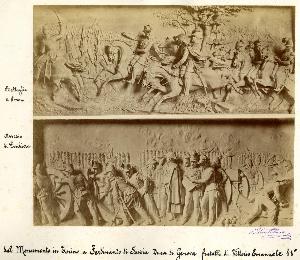 Battaglia
di Novara
Assedio
di Peschiera
del Monumento in Torino a Ferdinando di Savoia Duca di Genova fratello di Vittorio Emanuele II°